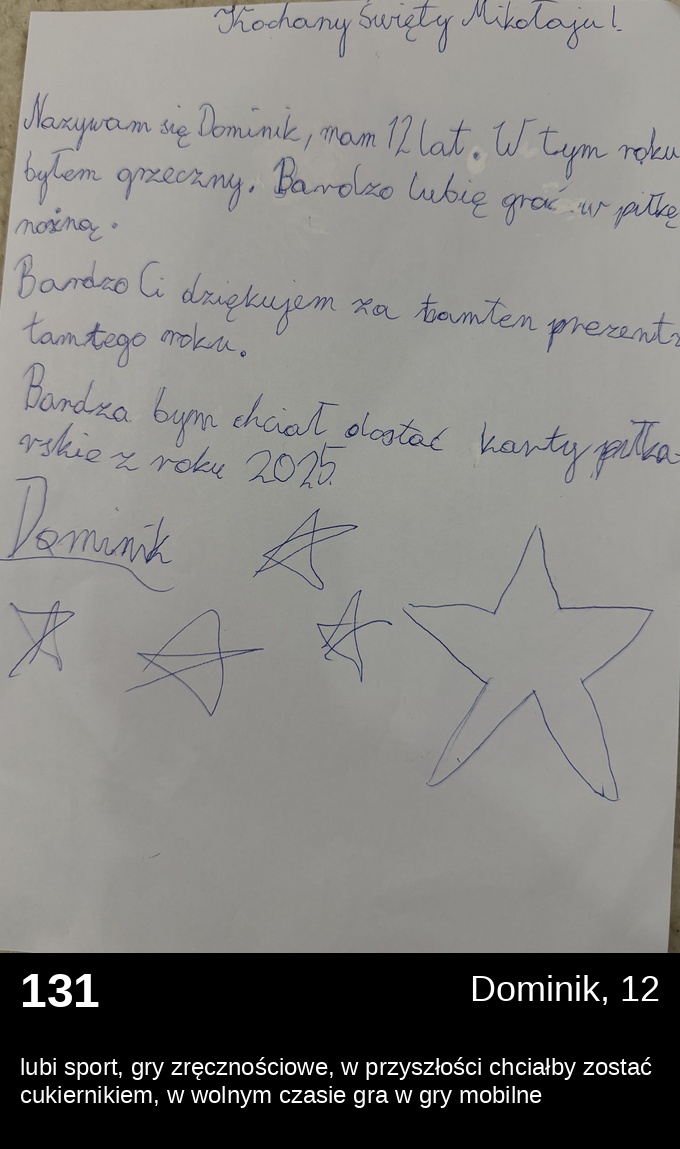 Kochany Święty Mikołaju!
Nazywam się Dominik, mam 12 lat. W tym roku
byłem grzeczny. Bardzo lubię grać w piłkę
nożną.
Bardzo Ci dziękujem za tamten prezent z
tamtego roku.
Bardza bym chciał dostać karty piłka-
rskie z roku 2025.
Dominik
131
Dominik, 12
lubi sport, gry zręcznościowe, w przyszłości chciałby zostać
cukiernikiem, w wolnym czasie gra w gry mobilne